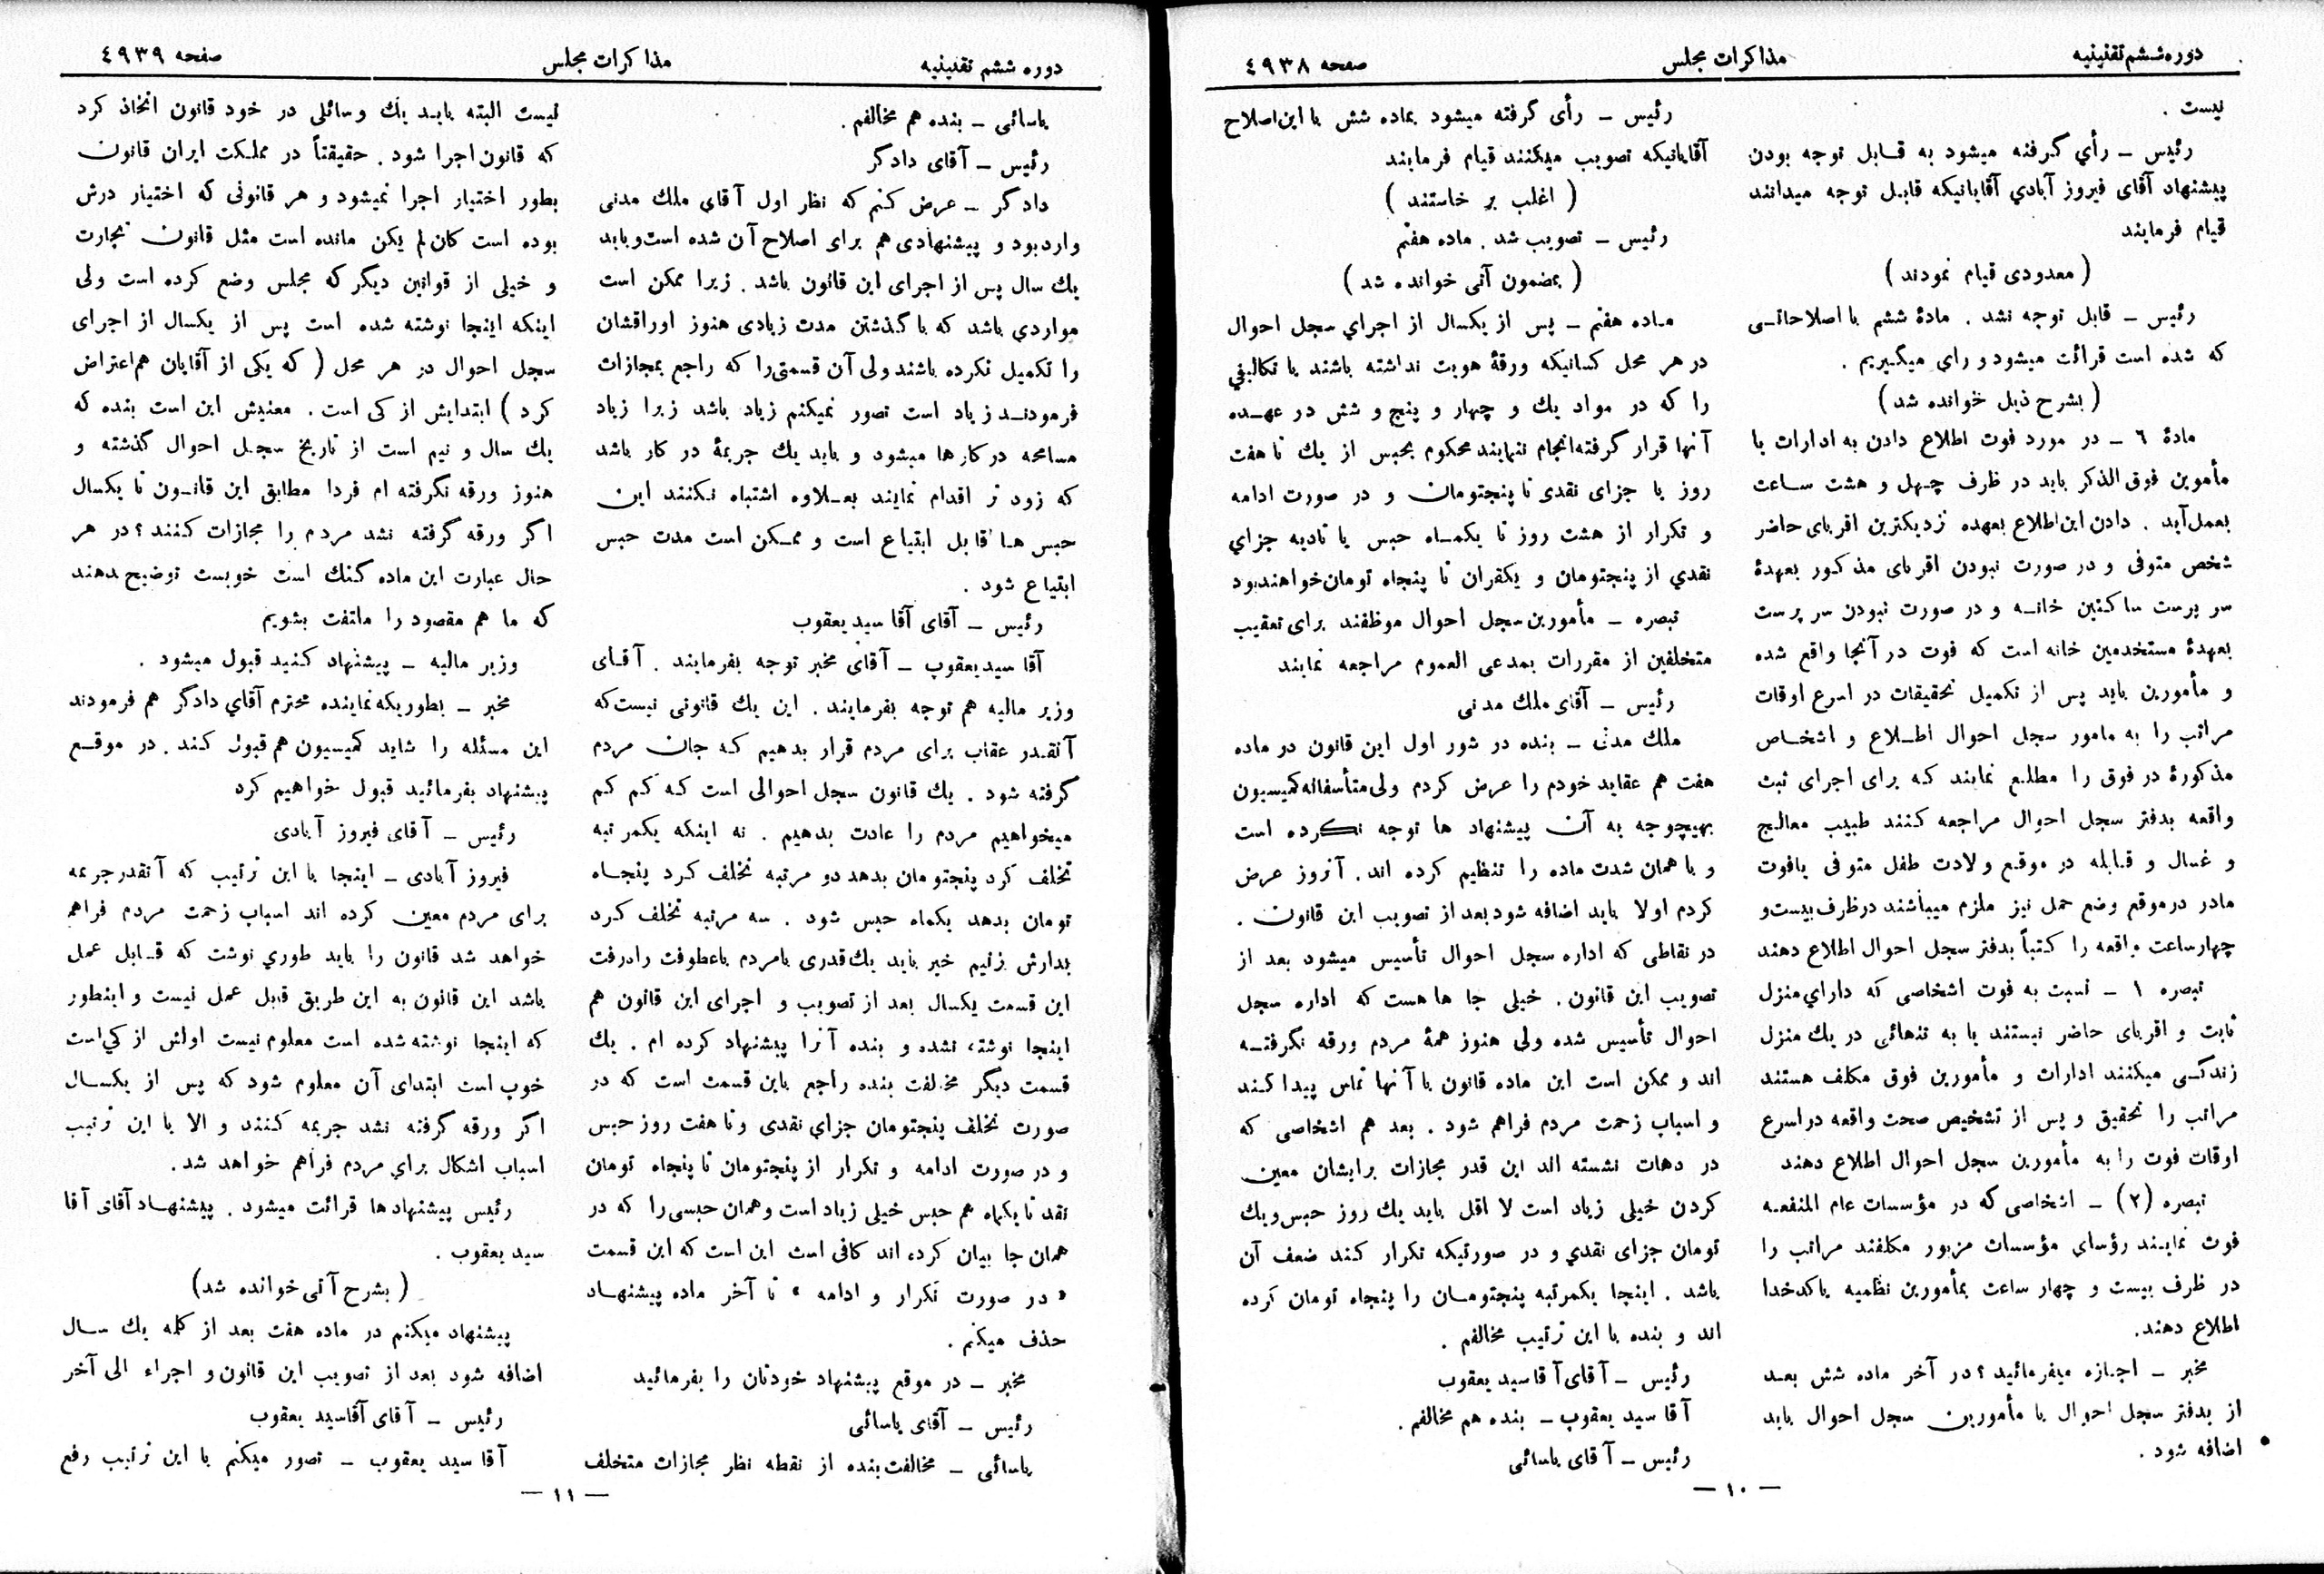 دوره ششم تقنینیه
مذاکرات مجلس
صفحه ٤٩٣٨
نیست .
رئیس ــ رأي گرفته میشود به قابل توجه بودن
پیشنهاد آقای فیروز آبادي آقایانیکه قابل توجه میدانند
قیام فرمایند
( معدودی قیام نمودند )
رئیس ــ قابل توجه نشد . مادۀ ششم با اصلاحاتی
که شده است قرائت میشود و رای میگیریم .
( بشرح ذیل خوانده شد )
مادۀ ٦ ــ در مورد فوت اطلاع دادن به ادارات یا
مأمورین فوق الذکر باید در ظرف چهل و هشت ساعت
بعمل آید . دادن این اطلاع بعهده نزدیکترین اقربای حاضر
شخص متوفی و در صورت نبودن اقربای مذکور بعهدۀ
سر پرست ساکنین خانه و در صورت نبودن سر پرست
بعهدۀ مستخدمین خانه است که فوت در آنجا واقع شده
و مأمورین باید پس از تکمیل تحقیقات در اسرع اوقات
مراتب را به مامور سجل احوال اطلاع و اشخاص
مذکورۀ در فوق را مطلع نمایند که برای اجرای ثبت
واقعه بدفتر سجل احوال مراجعه کنند طبیب معالج
و غسال و قابله در موقع ولادت طفل متوفی یافوت
مادر در موقع وضع حمل نیز ملزم میباشند در ظرف بیست و
چهار ساعت واقعه را کتباً بدفتر سجل احوال اطلاع دهند
تبصره ١ ــ نسبت به فوت اشخاصی که داراي منزل
ثابت و اقربای حاضر نیستند یا به تنهائی در یك منزل
زندگی میکنند ادارات و مأمورین فوق مکلف هستند
مراتب را تحقیق و پس از تشخیص صحت واقعه در اسرع
اوقات فوت را به مأمورین سجل احوال اطلاع دهند
تبصره (٢) ــ اشخاصی که در مؤسسات عام المنفعه
فوت نمایند رؤسای مؤسسات مزبور مکلفند مراتب را
در ظرف بیست و چهار ساعت بمأمورین نظمیه یا کدخدا
اطلاع دهند.
مخبر ــ اجازه میفرمائید ؟ در آخر ماده شش بعد
از بدفتر سجل احوال یا مأمورین سجل احوال باید
اضافه شود .
رئیس ــ رأی گرفته میشود بماده شش با این اصلاح
آقایانیکه تصویب میکنند قیام فرمایند
( اغلب بر خاستند )
رئیس ــ تصویب شد . ماده هفتم
( بمضمون آتی خوانده شد )
ماده هفتم ــ پس از یکسال از اجراي سجل احوال
در هر محل کسانیکه ورقۀ هویت نداشته باشند یا تکالیفي
را که در مواد یك و چهار و پنج و شش در عهده
آنها قرار گرفته انجام ننمایند محکوم بحبس از یك تا هفت
روز یا جزای نقدی تا پنجتومان و در صورت ادامه
و تکرار از هشت روز تا یکماه حبس یا تادیه جزاي
نقدي از پنجتومان و یکقران تا پنجاه تومان خواهند بود
تبصره ــ مأمورین سجل احوال موظفند برای تعقیب
متخلفین از مقررات بمدعی العموم مراجعه نمایند
رئیس ــ آقای ملك مدنی
ملك مدنی ــ بنده در شور اول این قانون در ماده
هفت هم عقاید خودم را عرض کردم ولی متأسفانه کمیسیون
بهیچوجه به آن پیشنهاد ها توجه نکرده است
و با همان شدت ماده را تنظیم کرده اند . آنروز عرض
کردم اولا باید اضافه شود بعد از تصویب این قانون .
در نقاطی که اداره سجل احوال تأسیس میشود بعد از
تصویب این قانون . خیلی جا ها هست که اداره سجل
احوال تأسیس شده ولی هنوز همۀ مردم ورقه نگرفته
اند و ممکن است این ماده قانون با آنها تماس پیدا کند
و اسباب زحمت مردم فراهم شود . بعد هم اشخاصی که
در دهات نشسته اند این قدر مجازات برایشان معین
کردن خیلی زیاد است لا اقل باید یك روز حبس و یك
تومان جزای نقدي و در صورتیکه تکرار کند ضعف آن
باشد . اینجا یکمرتبه پنجتومان را پنجاه تومان کرده
اند و بنده با این ترتیب مخالفم .
رئیس ــ آقای آقا سید یعقوب
آقا سید یعقوب ــ بنده هم مخالفم .
رئیس ــ آقای یاسائی
ــ ١٠ ــ
دوره ششم تقنینیه
مذاکرات مجلس
صفحه ٤٩٣٩
یاسائی ــ بنده هم مخالفم .
رئیس ــ آقای دادگر
دادگر ــ عرض کنم که نظر اول آقای ملك مدنی
وارد بود و پیشنهادی هم برای اصلاح آن شده است و باید
یك سال پس از اجرای این قانون باشد . زیرا ممکن است
مواردي باشد که با گذشتن مدت زیادی هنوز اوراقشان
را تکمیل نکرده باشند ولی آن قسمتی را که راجع بمجازات
فرمودند زیاد است تصور نمیکنم زیاد باشد زیرا زیاد
مسامحه در کارها میشود و باید یك جریمۀ در کار باشد
که زود تر اقدام نمایند بعلاوه اشتباه نکنند این
حبس ها قابل ابتیاع است و ممکن است مدت حبس
ابتیاع شود .
رئیس ــ آقای آقا سید یعقوب
آقا سید یعقوب ــ آقای مخبر توجه بفرمایند . آقای
وزیر مالیه هم توجه بفرمایند . این یك قانونی نیست که
آنقدر عقاب برای مردم قرار بدهیم که جان مردم
گرفته شود . یك قانون سجل احوالی است که کم کم
میخواهیم مردم را عادت بدهیم . نه اینکه یکمرتبه
تخلف کرد پنجتومان بدهد دو مرتبه تخلف کرد پنجاه
تومان بدهد یکماه حبس شود . سه مرتبه تخلف کرد
بدارش زنیم خیر باید یك قدری با مردم با عطوفت را درفت
این قسمت یکسال بعد از تصویب و اجرای این قانون هم
اینجا نوشته نشده و بنده آنرا پیشنهاد کرده ام . یك
قسمت دیگر مخالفت بنده راجع باین قسمت است که در
صورت تخلف پنجتومان جزاي نقدی و تا هفت روز حبس
و در صورت ادامه و تکرار از پنجتومان تا پنجاه تومان
نقد تا یکماه هم حبس خیلی زیاد است و همان حبسی را که در
همان جا بیان کرده اند کافی است این است که این قسمت
« در صورت تکرار و ادامه » تا آخر ماده پیشنهاد
حذف میکنم .
مخبر ــ در موقع پیشنهاد خودتان را بفرمائید
رئیس ــ آقای یاسائی
یاسائی ــ مخالفت بنده از نقطه نظر مجازات متخلف
نیست البته باید یك وسائلی در خود قانون اتخاذ کرد
که قانون اجرا شود . حقیقتاً در مملکت ایران قانون
بطور اختیار اجرا نمیشود و هر قانونی که اختیار درش
بوده است کان لم یکن مانده است مثل قانون تجارت
و خیلی از قوانین دیگر که مجلس وضع کرده است ولی
اینکه اینجا نوشته شده است پس از یکسال از اجرای
سجل احوال در هر محل ( که یکی از آقایان هم اعتراض
کرد ) ابتدایش از کی است . معنیش این است بنده که
یك سال و نیم است از تاریخ سجل احوال گذشته و
هنوز ورقه نگرفته ام فردا مطابق این قانون تا یکسال
اگر ورقه گرفته نشد مردم را مجازات کنند ؟ در هر
حال عبارت این ماده گنك است خوبست توضیح بدهند
که ما هم مقصود را ملتفت بشویم
وزیر مالیه ــ پیشنهاد کنید قبول میشود .
مخبر ــ بطوریکه نماینده محترم آقاي دادگر هم فرمودند
این مسئله را شاید کمیسیون هم قبول کند . در موقع
پیشنهاد بفرمائید قبول خواهیم کرد
رئیس ــ آقای فیروز آبادی
فیروز آبادی ــ اینجا با این ترتیب که آنقدر جریمه
برای مردم معین کرده اند اسباب زحمت مردم فراهم
خواهد شد قانون را باید طوري نوشت که قابل عمل
باشد این قانون به این طریق قابل عمل نیست و اینطور
که اینجا نوشته شده است معلوم نیست اولش از کي است
خوب است ابتدای آن معلوم شود که پس از یکسال
اگر ورقه گرفته نشد جریمه کنند و الا با این ترتیب
اسباب اشکال براي مردم فراهم خواهد شد .
رئیس پیشنهادها قرائت میشود . پیشنهاد آقای آقا
سید یعقوب .
( بشرح آتی خوانده شد )
پیشنهاد میکنم در ماده هفت بعد از کلمه یك سال
اضافه شود بعد از تصویب این قانون و اجراء الی آخر
رئیس ــ آقای آقاسید یعقوب
آقا سید یعقوب ــ تصور میکنم با این ترتیب رفع
ــ ١١ ــ